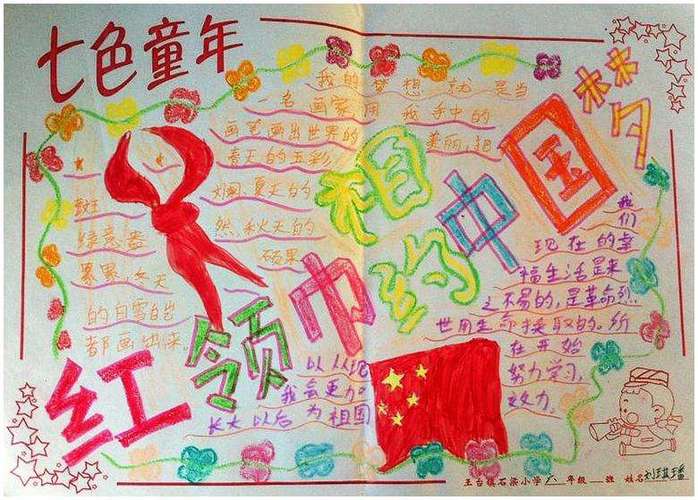 七色童年
我的梦想就是当
一名画家,用我手中的
画笔画出世界的美丽,把
春天的五彩
斑斓、夏天的
绿意盎然、秋天的
累累硕果、冬天
的白雪皑皑
都画出来。
红领巾相约中国梦
我们
现在的幸
福生活是来
之不易的,是革命烈
世用生命换取的。所
以从现在开始
我会更力努力学习,
长大以后为祖国效力。
王台镇石梁小学六年级 班 姓名